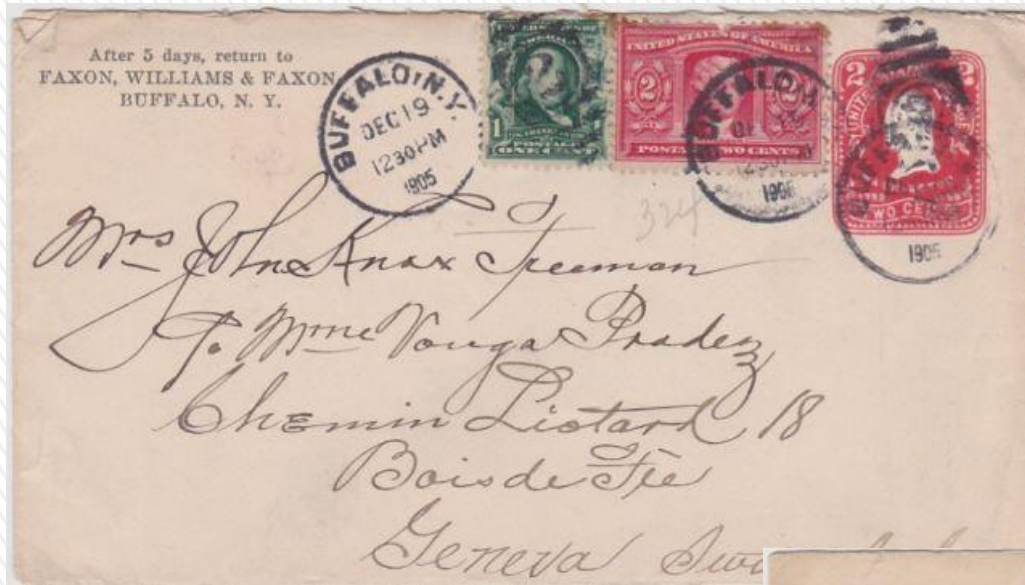 After 5 days, return to
FAXON, WILLIAMS & FAXON
BUFFALO, N. Y.
BUFFALO, N.Y.
DEC 19
1230 PM
1905
1
ONE CENT
UNITED STATES OF AMERICA
2 2
POSTAGE TWO CENTS
BUFFALO, N
2 2
TWO CEN
324
Mrs John Knox Freeman
Mme Vouga Pradez
Chemin Liotard 18
Bois de Fée
Geneva